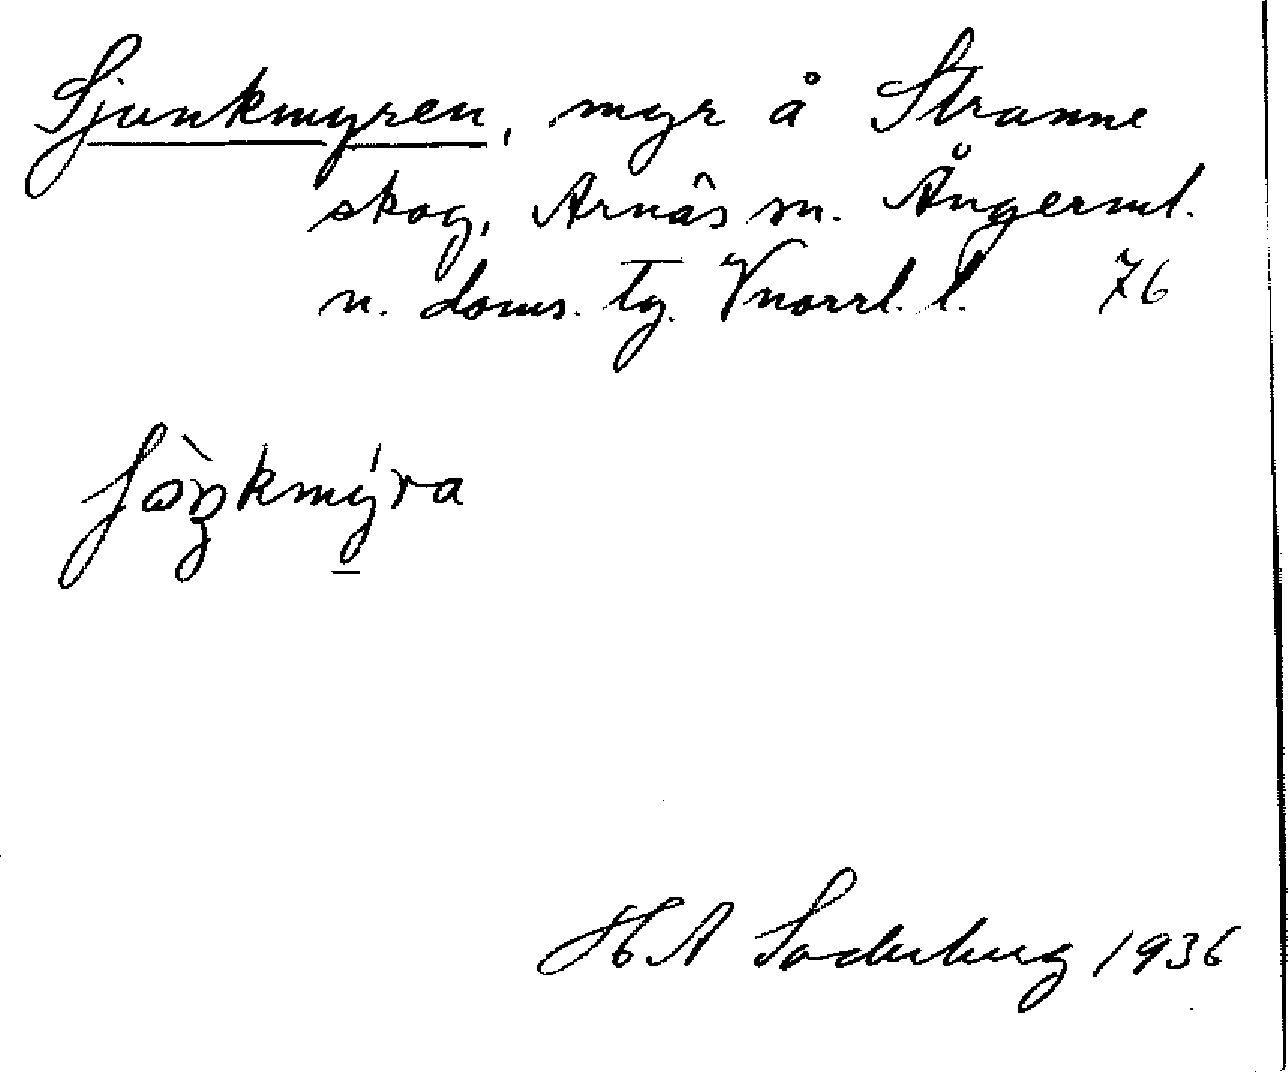 Sjunkmyren, myr å Stranne
skog, Arnäs sn. Ångerml.
n. doms. tg. Vnorrl. l. 76
H A Soderberg 1936